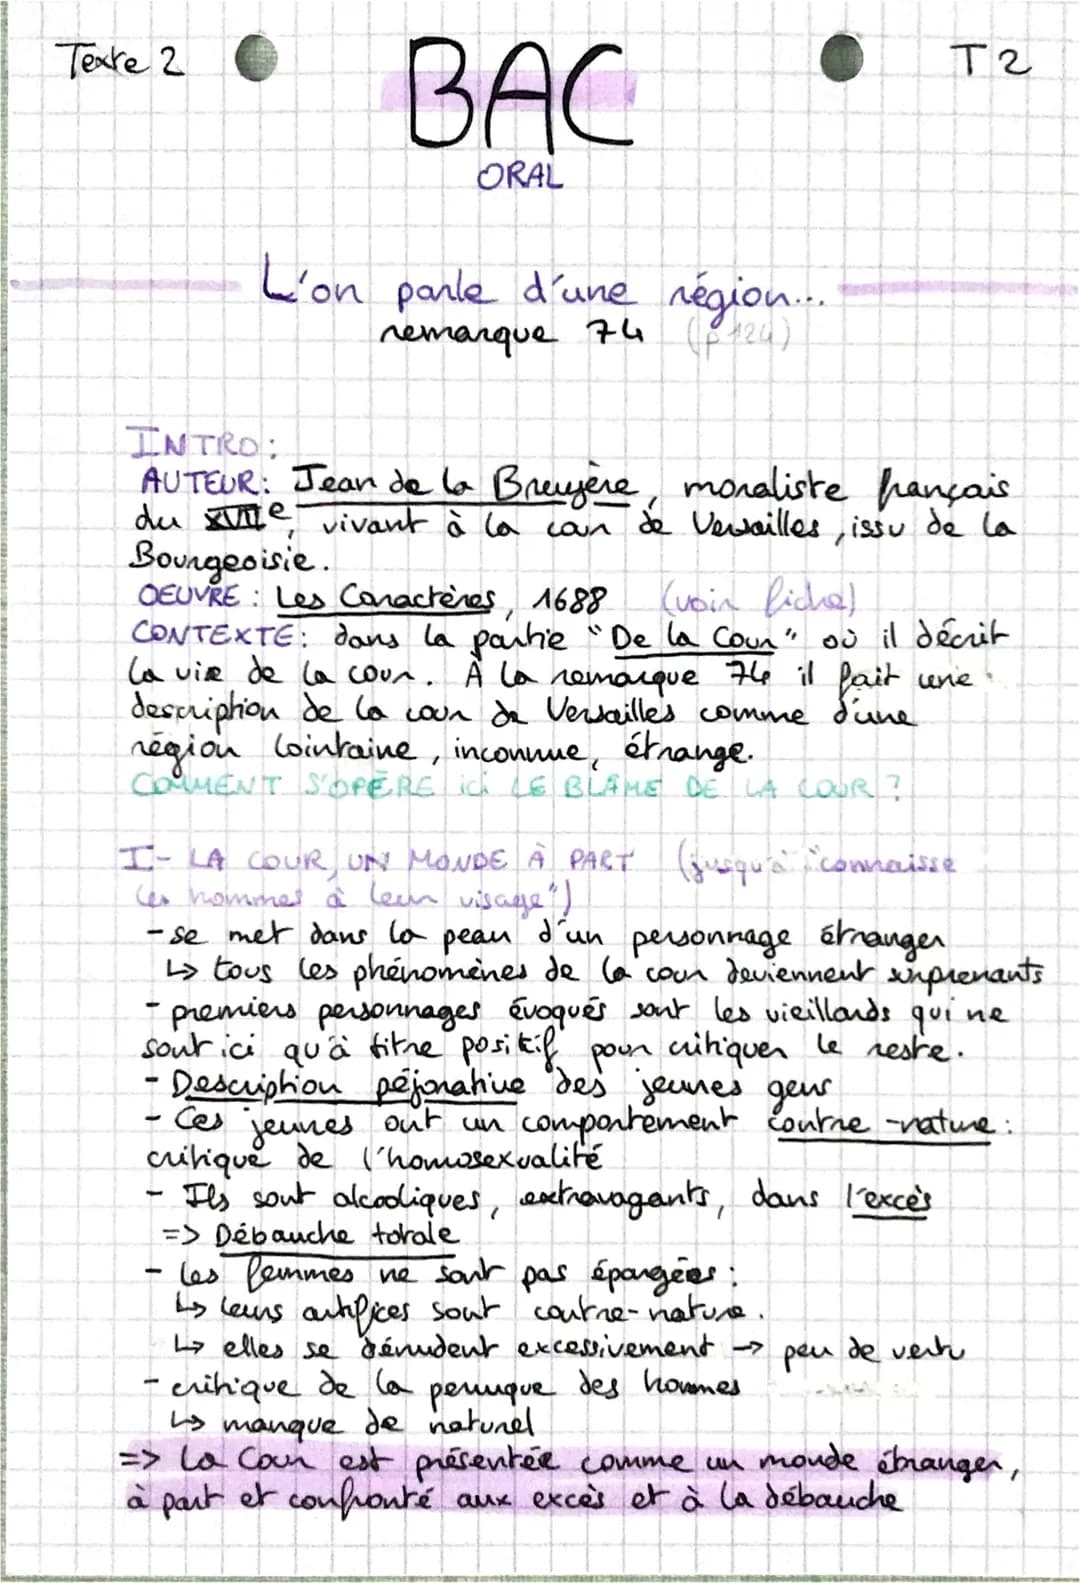 Texte 2
BAC
T2
ORAL
L'on parle d'une région...
remarque 74 (p 124)
INTRO:
AUTEUR: Jean de la Bruyère, moraliste français
du XVIIe, vivant à la cour de Versailles, issu de la
Bourgeoisie.
OEUVRE : Les Caractères, 1688 (voir fiche)
CONTEXTE: dans la partie "De la Cour" où il décrit
la vie de la cour. À la remarque 74 il fait une
description de la cour de Versailles comme d'une
région lointaine, inconnue, étrange.
COMMENT S'OPÈRE ici LE BLÂME DE LA COUR ?
I- LA COUR, UN MONDE À PART (jusqu'à "connaisse
les hommes à leur visage")
- se met dans la peau d'un personnage étranger
↳ tous les phénomènes de la cour deviennent surprenants
- premiers personnages évoqués sont les vieillards qui ne
sont ici qu'à titre positif pour critiquer le reste.
- Description péjorative des jeunes gens
- Ces jeunes ont un comportement contre-nature :
critique de l'homosexualité
- Ils sont alcooliques, extravagants, dans l'excès
=> Débauche totale
- les femmes ne sont pas épargées :
↳ leurs artifices sont contre-nature.
↳ elles se dénudent excessivement → peu de vertu
- critique de la perruque des hommes
↳ manque de naturel
=> La Cour est présentée comme un monde étranger,
à part et confronté aux excès et à la débauche